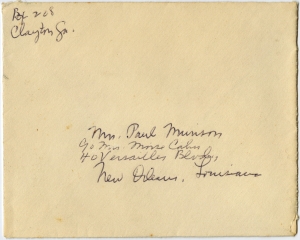 Box 208
Clayton Ga.
Mrs. Paul Munson
c/o Mrs. Moise Cahn
40 Versailles Blvd.
New Orleans, Louisiana